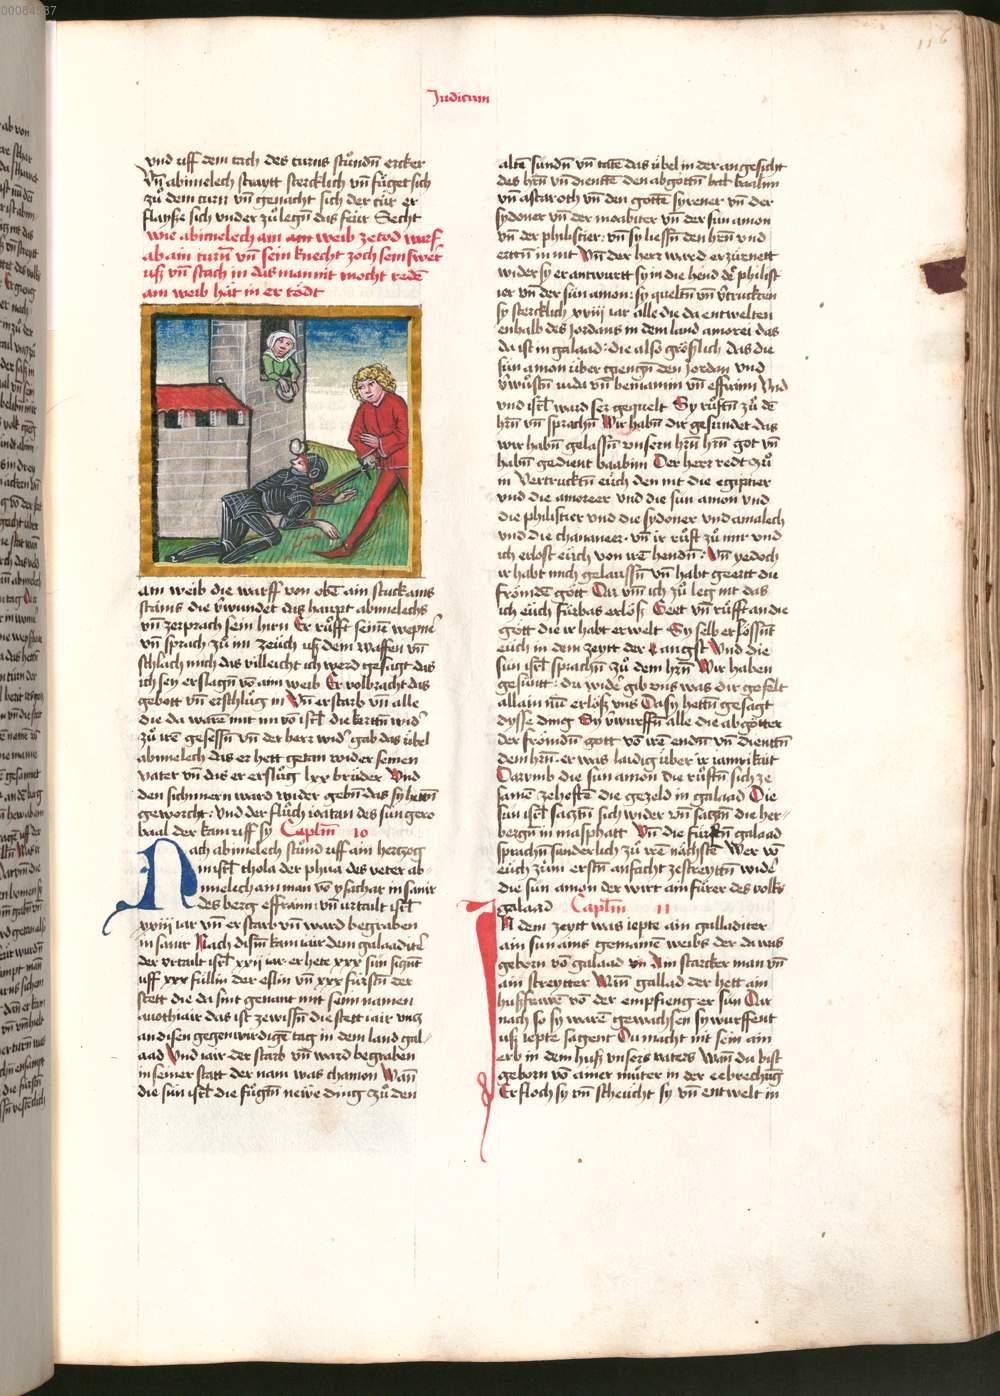 00084537
116
Judicum
vnd uff dem tach des turns stůndn̄ ercker
Vn̄ abimelech straytt stercklich vn̄ fůget sich
zů dem turn vn̄ genacht sich der tür er
flanse sich vnder zů legn̄ das feür Secht
wie abimelech am am weib ze tod warf
ab ain turn̄ vn̄ sein knecht zoch sein swert
uß vn̄ stach in das man nit mocht redē
am weib hät in er tödt
am weib die warff von obē ain stuck ains
stains die v̄wundet das haupt abimelechs
vn̄ zerprach sein hirn Er růfft seinē wepnē
vn̄ sprach zů im zeüch uß dem waffen vn̄
schlach mich das villeicht ich werd gesagt das
ich sey erslagn̄ vō am weib Er volbracht das
gebott vn̄ erschlůg in Vn̄ er starb vn̄ alle
die da warē mit im vō isrl̄ die kertn̄ wid
zů irē gesessn̄ vn̄ der herr wid gab das übel
abimelech das er hett getan wider seinen
vater vn̄ das er erslůg lxx brüder Vnd
den sichimern ward wider gebn̄ das sy hettn̄
geworcht: vnd der flůch ioatan des sun gero
baal der kam uff sy Caplm̄ 10
Nach abimelech stůnd uff ain hertzog
in isrl̄ thola der phua des veter ab
imelech am man vō ysachar in samir
des berg effraim: vn̄ urtailt isrl̄
xxiii iar vn̄ er starb vn̄ ward begraben
in samir Nach dism̄ kam iair dem galaaditē
der vrtailt isrl̄ xxii iar er hete xxx sün siczēt
uff xxx füllin der eslin vn̄ xxx fürstn̄ der
stett die da sint genant mit seim namen
auothiair das ist ze wissn̄ die stett iair vncz
an disen gegenwirdigē tag in dem land gal
aad Vnd iair der starb vn̄ ward begraben
in seiner statt der nam was chamon Wan̄
die sün isrl̄ die fůgtn̄ neẅe ding czů den
altē sündn̄ vn̄ tatē das übel in der angesicht
des hr̄n vn̄ dienttē den abgöttn̄ betl baalim
vn̄ astaroth vn̄ den gottē syrener vn̄ der
sydoner vn̄ der moabiter vn̄ der sun amon
vn̄ der philistier: vn̄ sy liessn̄ den hr̄n vnd
ertn̄ in nit Vn̄ der herr ward erzürnett
wider sy er antwurtt sy in die hend der philist
ier vn̄ der sün amon: sy queltn̄ vn̄ v̄truckten
sy stercklich xviii iar alle die da entwelten
enhalb des Jordans in dem land amorei das
da ist in galaad: die also größlich das die
sün amon über giengn̄ den Jordan vnd
v̄wůstn̄ iuda vn̄ beniamin vn̄ effraim Vnd
vnd isrl̄ ward ser gequelt Sy růftn̄ zů dē
hr̄n vn̄ sprachn̄ Wir habn̄ dir gesundet das
wir habn̄ gelassn̄ vnsern hr̄n hr̄n got vn̄
habn̄ gedient baalim Der herr redt zů
in Vertrucktn̄ euch den nit die egiptier
vnd die amoreer vnd die sun amon vnd
die philistier vnd die sydoner vnd amalech
vnd die chananeer. vn̄ ir růft zů mir vnd
ich erlost eüch von irē hendn̄: Vn̄ yedoch
ir habt mich gelaussn̄ vn̄ habt geertt die
frömdē gött Dar vm̄ ich zů leg nit das
ich eüch fürbas erlöß Geet vn̄ růfft an die
gött die ir habt erwelt Sy selb erlössn̄t
euch in dem zeytt der angst Vnd die
sün isrl̄ sprachn̄ zů dem hr̄n Wir haben
gesüntt: du widē gib vns was dir gefelt
allain nū erlöß vns Da sy hettn̄ gesagt
dysse ding Sy v̄wurffn̄ alle die abgötter
der frömdn̄ gott vō irē endn̄ vn̄ dienttn̄
dem hr̄n. er was laidig über ir iamrikait
Darvmb die sün amon die růftn̄ sich ze
samē ze heftē die gezeld in galaad Die
sün isrl̄ satztn̄ sich wider vn̄ satztn̄ die her-
bergn̄ in masphatt Vn̄ die fürstn̄ galaad
sprachn̄ sunderlich zů irē nächstē Wer vō
eüch zům erstn̄ anfacht zestreyttn̄ widē
die sün amon der wirt ain fürer des volks
galaad Caplm̄ 11
IN dem zeytt was iepte ain galladiter
ain sun ains gemainē weibs der da was
geborn vō galaad vn̄ Ain starcker man vn̄
ain streytter Wan̄ gallad der hett ain
husfrawē vō der empfieng er sün Dar
nach so sy warē gewachsen sy wurffent
uß iepte sagent Du macht nit sein ain
erb in dem huß vnsers vaters Wan̄ du bist
geborn vō ainer můter in der eebrechūg
Er floch sy vn̄ scheücht sy vn̄ entwelt in